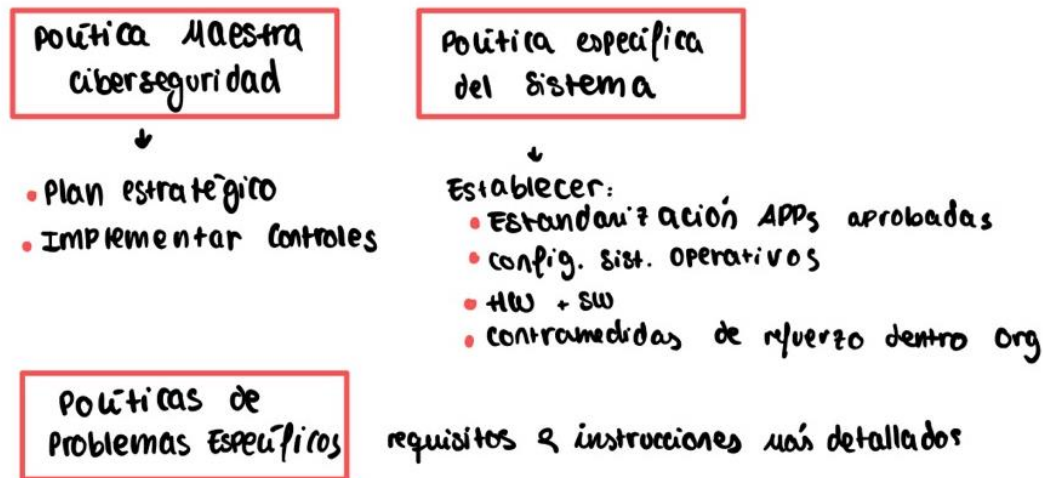 Política Maestra
ciberseguridad
• Plan estratégico
• Implementar Controles
Política específica
del sistema
Establecer:
• Estandarización APPs aprobadas
• config. sist. operativos
• HW + SW
• contramedidas de refuerzo dentro Org
Políticas de
Problemas Específicos
requisitos & instrucciones más detallados